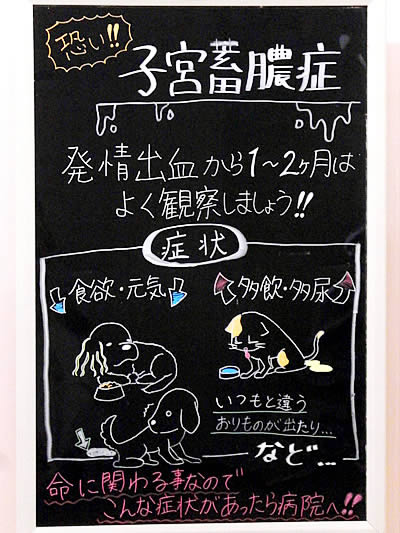 恐い!!
子宮蓄膿症
発情出血から1~2ヶ月は
よく観察しましょう!!
症状
食欲・元気
多飲・多尿
いつもと違う
おりものが出たり…
など…
命に関わる事なので
こんな症状があったら病院へ!!